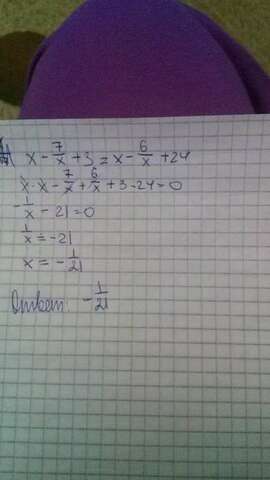 x - 7/x + 3 = x - 6/x + 24
x - x - 7/x + 6/x + 3 - 24 = 0
- 1/x - 21 = 0
1/x = -21
x = - 1/21
Ответ: - 1/21